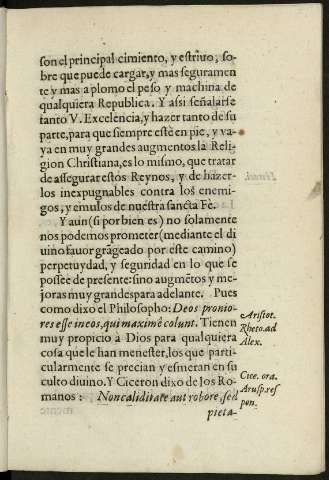 son el principal cimiento, y estriuo, so-
bre que puede cargar, y mas seguramen
te y mas a plomo el peso y machina de
qualquiera Republica. Y assi señalarse
tanto V. Excelencia, y hazer tanto de su
parte, para que siempre estè en pie, y va-
ya en muy grandes augmentos la Reli-
gion Christiana, es lo mismo, que tratar
de assegurar estos Reynos, y de hazer-
los inexpugnables contra los enemi-
gos, y emulos de nuestra sancta Fè.
Y aun (si por bien es) no solamente
nos podemos prometer (mediante el di
uino fauor grãgeado por este camino)
perpetuydad, y seguridad en lo que se
possee de presente: sino augmẽtos y me-
joras muy grandes para adelante. Pues
como dixo el Philosopho: Deos pronio-
res esse in eos, qui maximè colunt. Tienen
muy propicio a Dios para qualquiera
cosa que le han menester, los que parti-
cularmente se precian y esmeran en su
culto diuino. Y Ciceron dixo de los Ro-
manos: Non calliditate aut robore, sed
pieta-
Aristot.
Rheto. ad
Alex.
Cice. ora.
Arusp. res
pon.